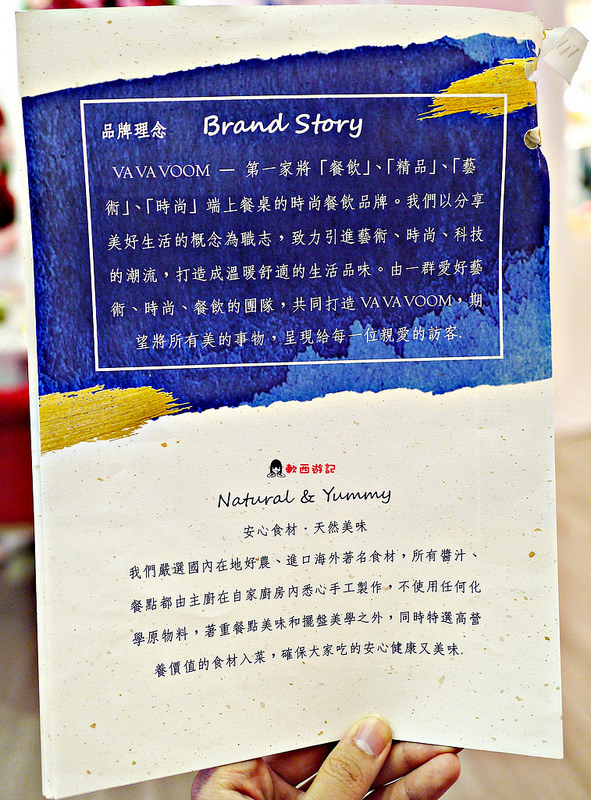 品牌理念 Brand Story
VA VA VOOM — 第一家將「餐飲」、「精品」、「藝
術」、「時尚」端上餐桌的時尚餐飲品牌。我們以分享
美好生活的概念為職志，致力引進藝術、時尚、科技
的潮流，打造成溫暖舒適的生活品味。由一群愛好藝
術、時尚、餐飲的團隊，共同打造 VA VA VOOM，期
望將所有美的事物，呈現給每一位親愛的訪客.
軟西遊記
Natural & Yummy
安心食材．天然美味
我們嚴選國內在地好農、進口海外著名食材，所有醬汁、
餐點都由主廚在自家廚房內悉心手工製作，不使用任何化
學原物料，著重餐點美味和擺盤美學之外，同時特選高營
養價值的食材入菜，確保大家吃的安心健康又美味.